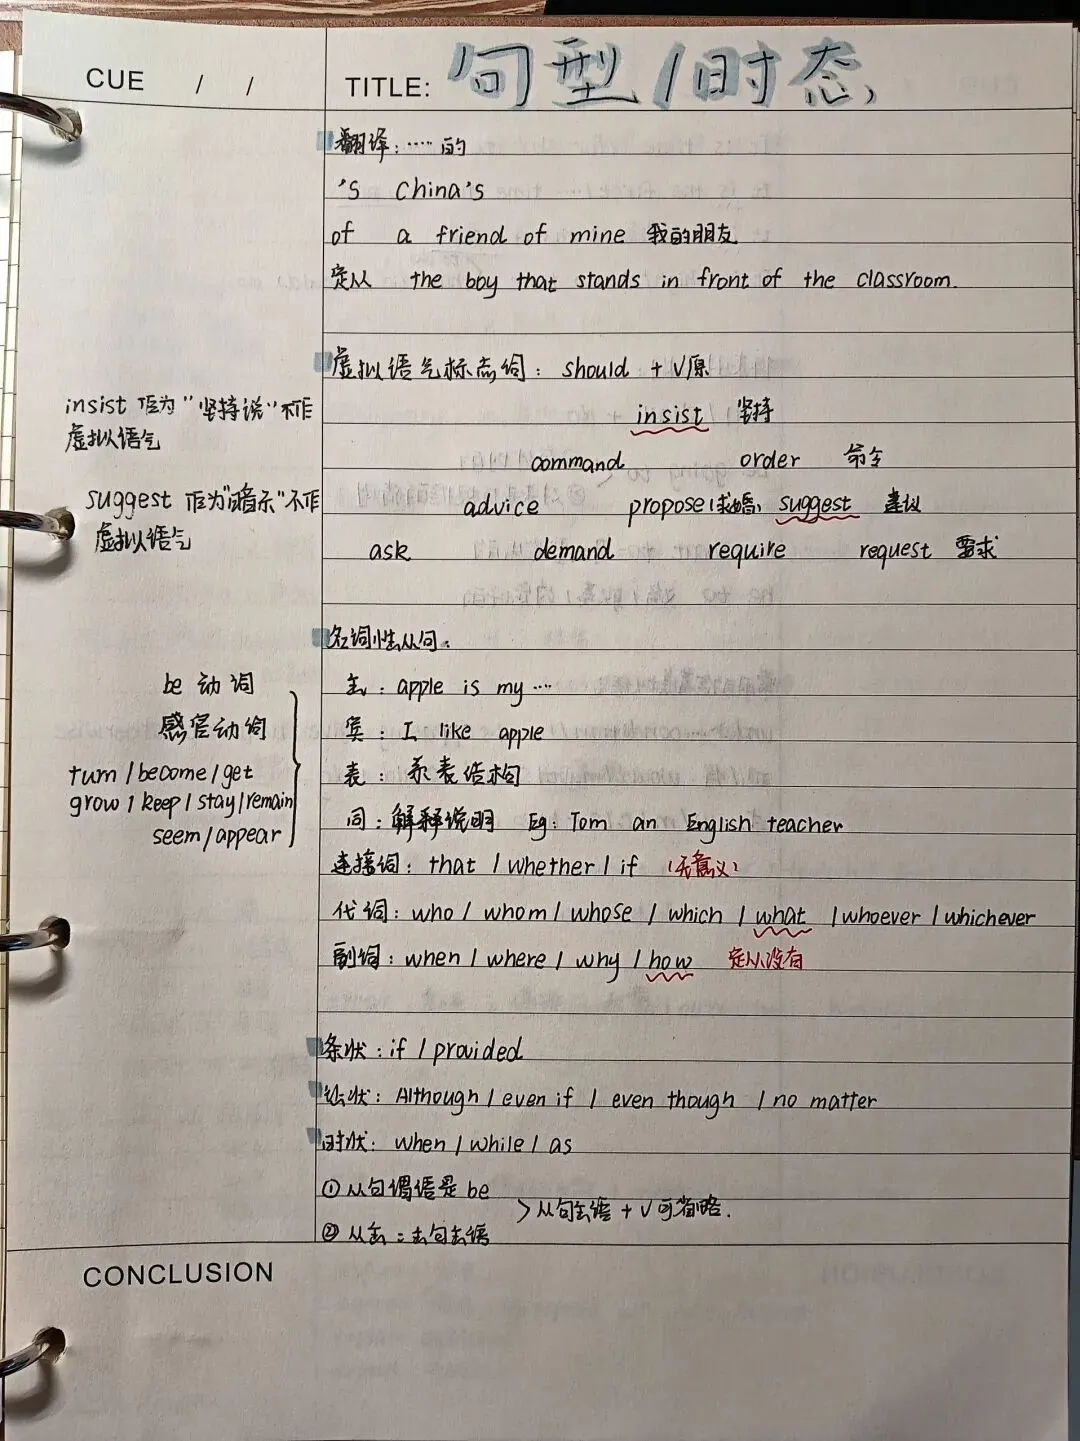 CUE / /
TITLE: 句型/时态
翻译:……的
's China's
of a friend of mine 我的朋友
定从 the boy that stands in front of the classroom.
虚拟语气标志词: should + V原
insist 作为"坚持说"不作
虚拟语气
insist 坚持
command order 命令
suggest 作为"暗示"不作
虚拟语气
advice propose(求婚) suggest 建议
ask demand require request 要求
名词性从句:
be 动词
感官动词
turn / become / get
grow / keep / stay / remain
seem / appear
主: apple is my …
宾: I like apple
表: 系表结构
同: 解释说明 Eg: Tom an English teacher
连接词: that / whether / if (无意义)
代词: who / whom / whose / which / what / whoever / whichever
副词: when / where / why / how 定从没有
条状: if / provided
让状: Although / even if / even though / no matter
时状: when / while / as
① 从句谓语是 be
② 从主 = 主句主语
> 从句主语 + V可省略.
CONCLUSION